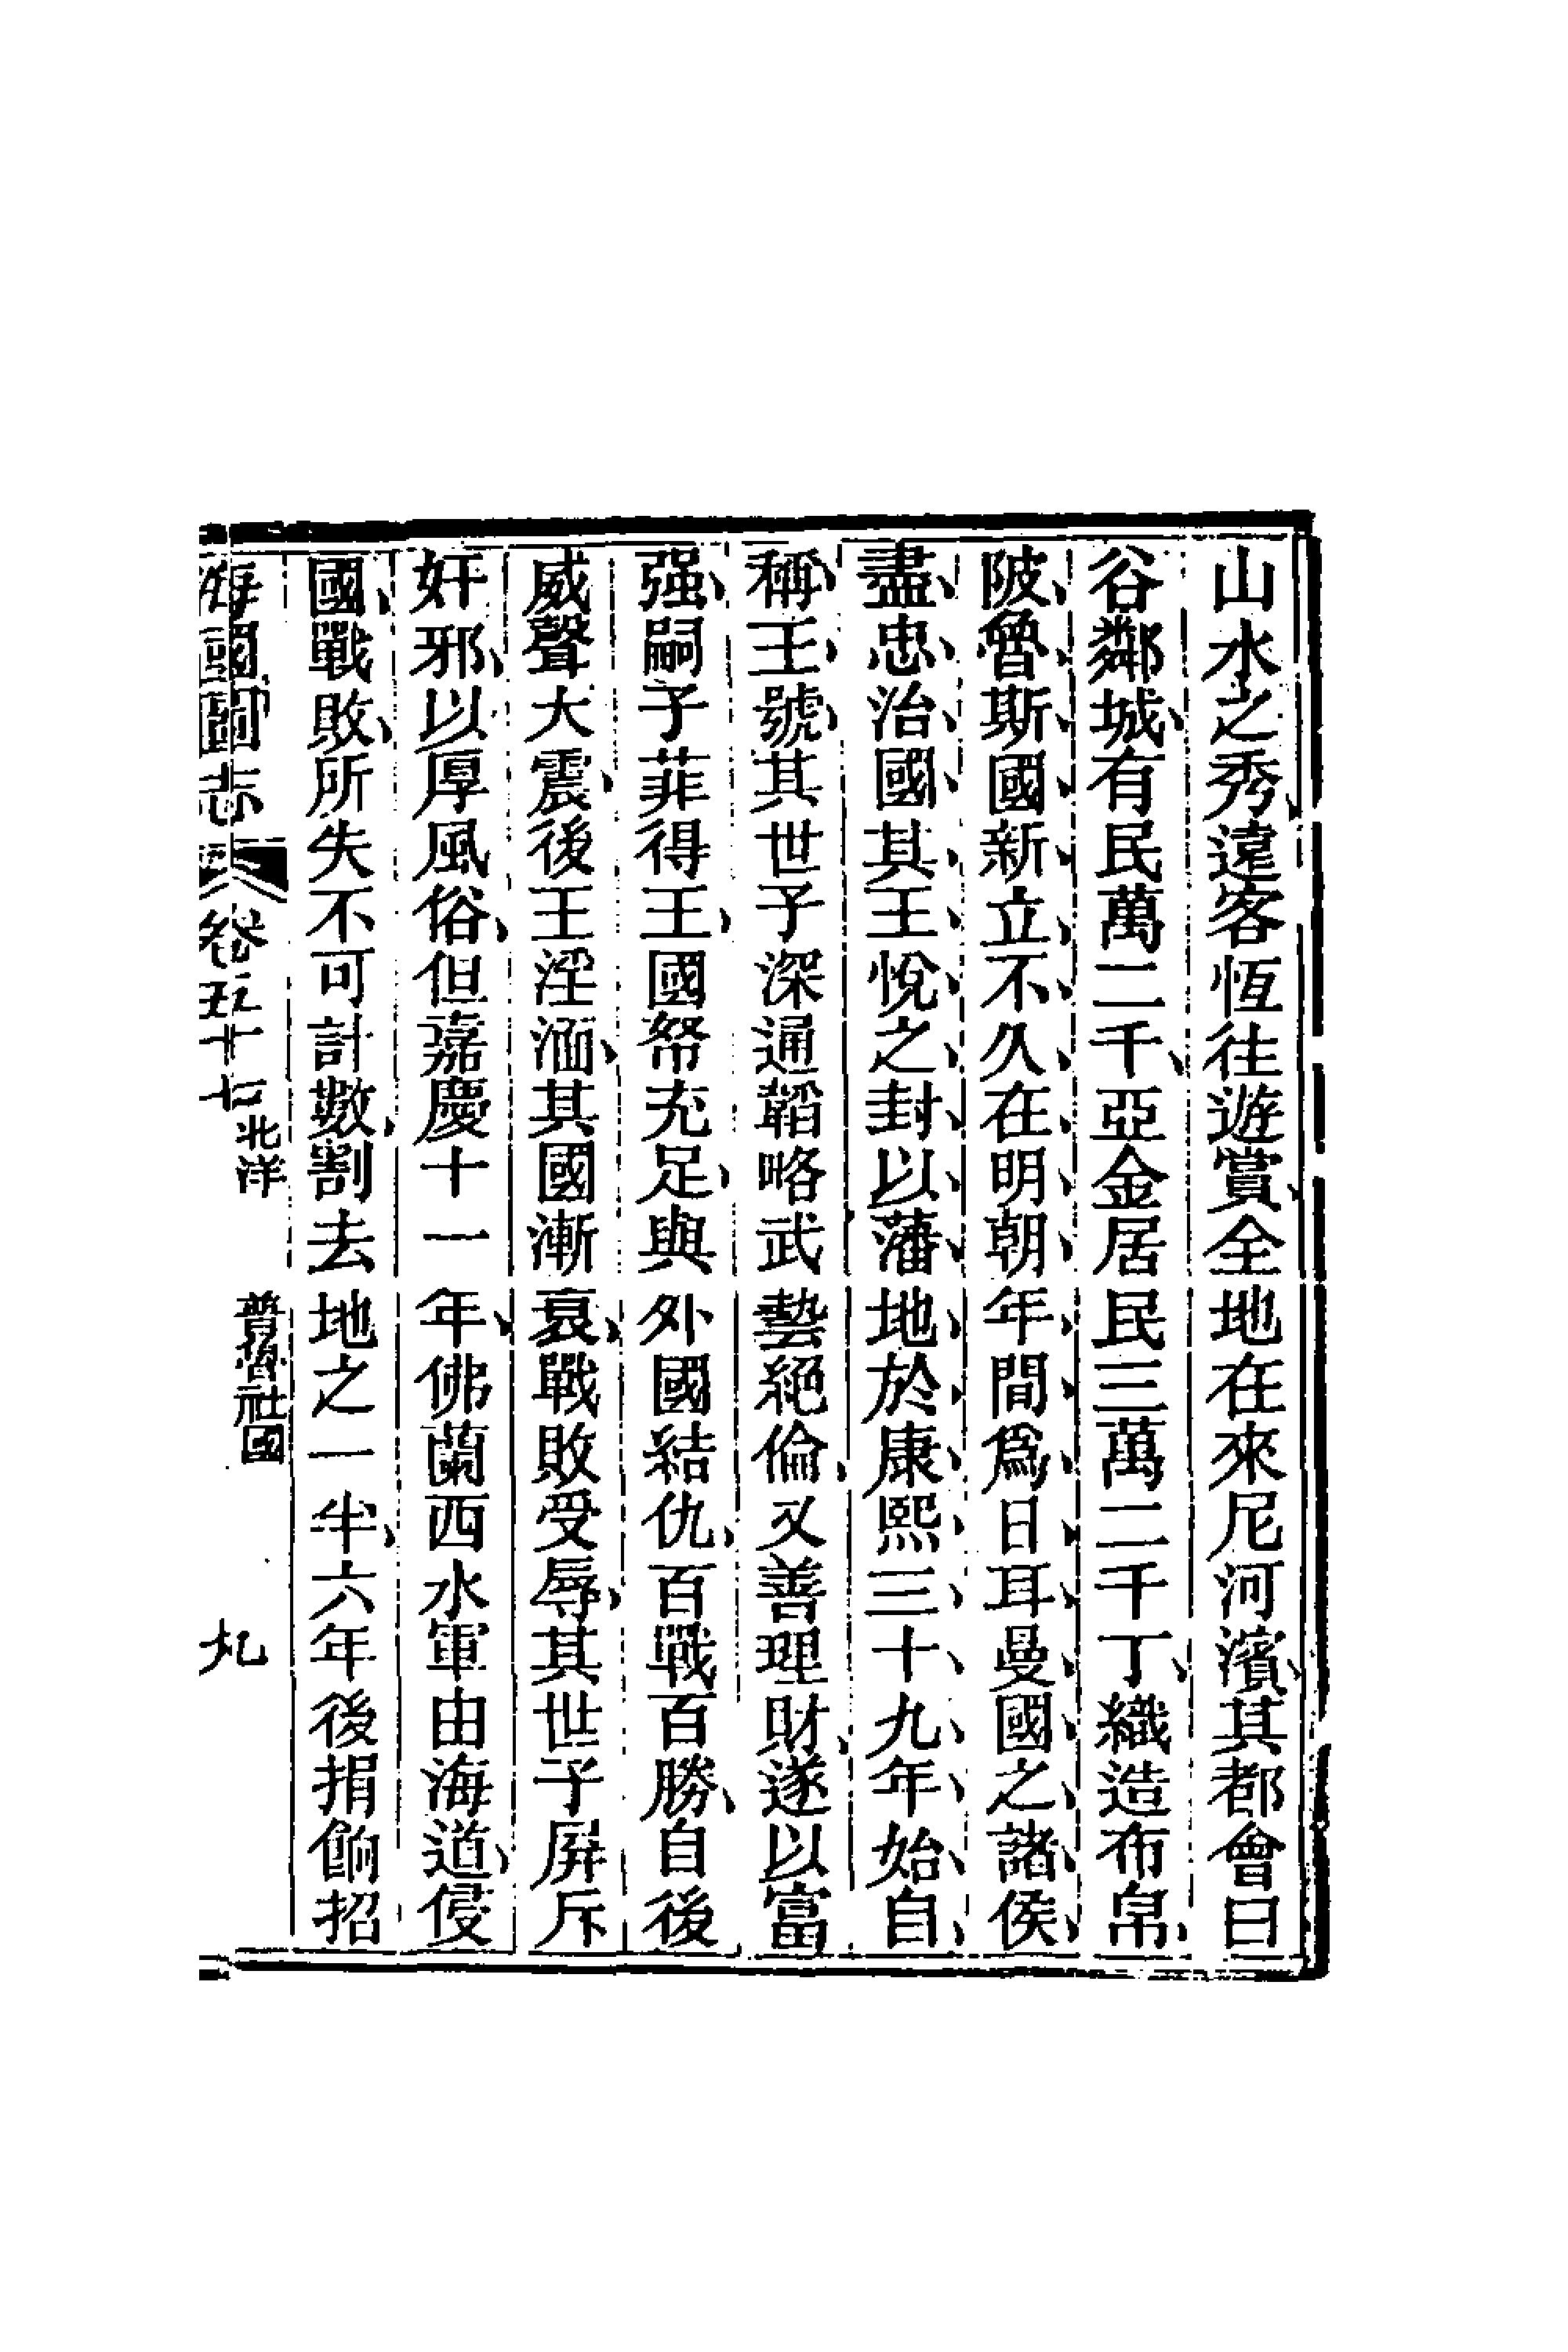 山水之秀遠客恆往遊賞全地在來尼河濱其都會曰
谷鄰城有民萬二千亞金居民三萬二千丁織造布帛
陂魯斯國新立不久在明朝年間爲日耳曼國之諸侯
盡忠治國其王悅之封以藩地於康熙三十九年始自
稱王號其世子深通韜略武藝絕倫又善理財遂以富
强嗣子菲得王國帑充足與外國結仇百戰百勝自後
威聲大震後王淫湎其國漸衰戰敗受辱其世子屏斥
奸邪以厚風俗但嘉慶十一年佛蘭西水軍由海道侵
國戰敗所失不可計數割去地之一半六年後捐餉招
海國圖志 卷五十七 北洋 普魯社國 九